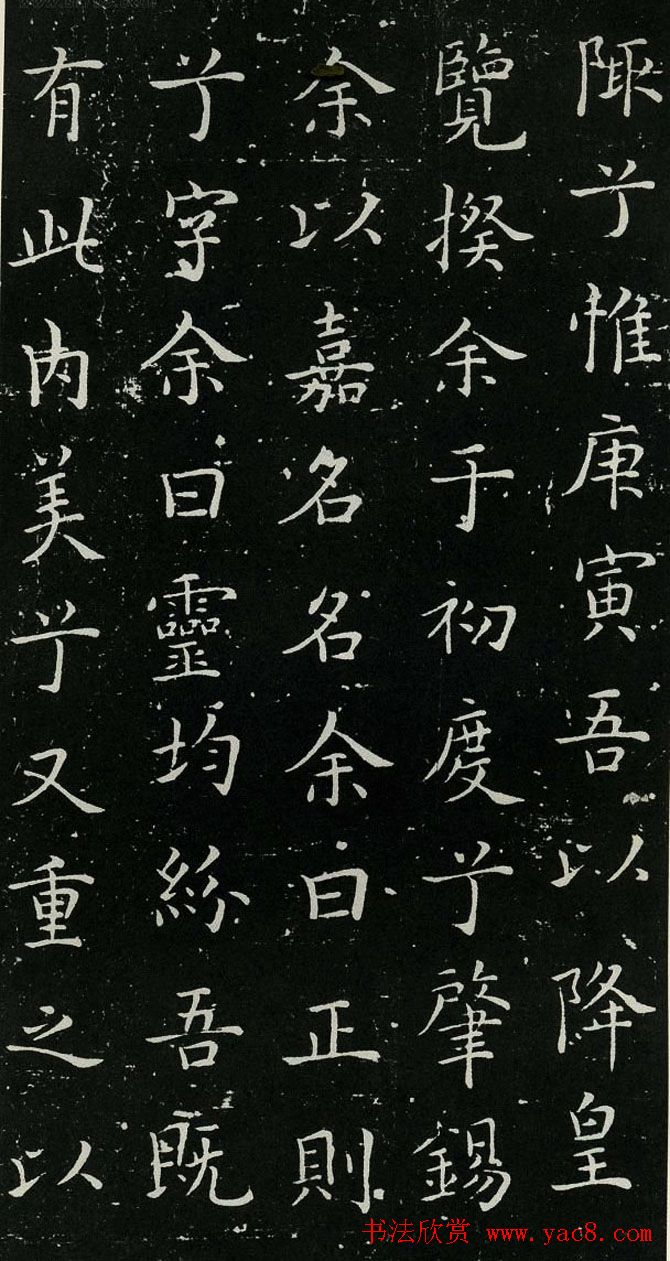 陬兮惟庚寅吾以降皇
覽揆余于初度兮肇錫
余以嘉名名余曰正則
兮字余曰靈均紛吾既
有此内美兮又重之以
书法欣赏 www.yac8.com